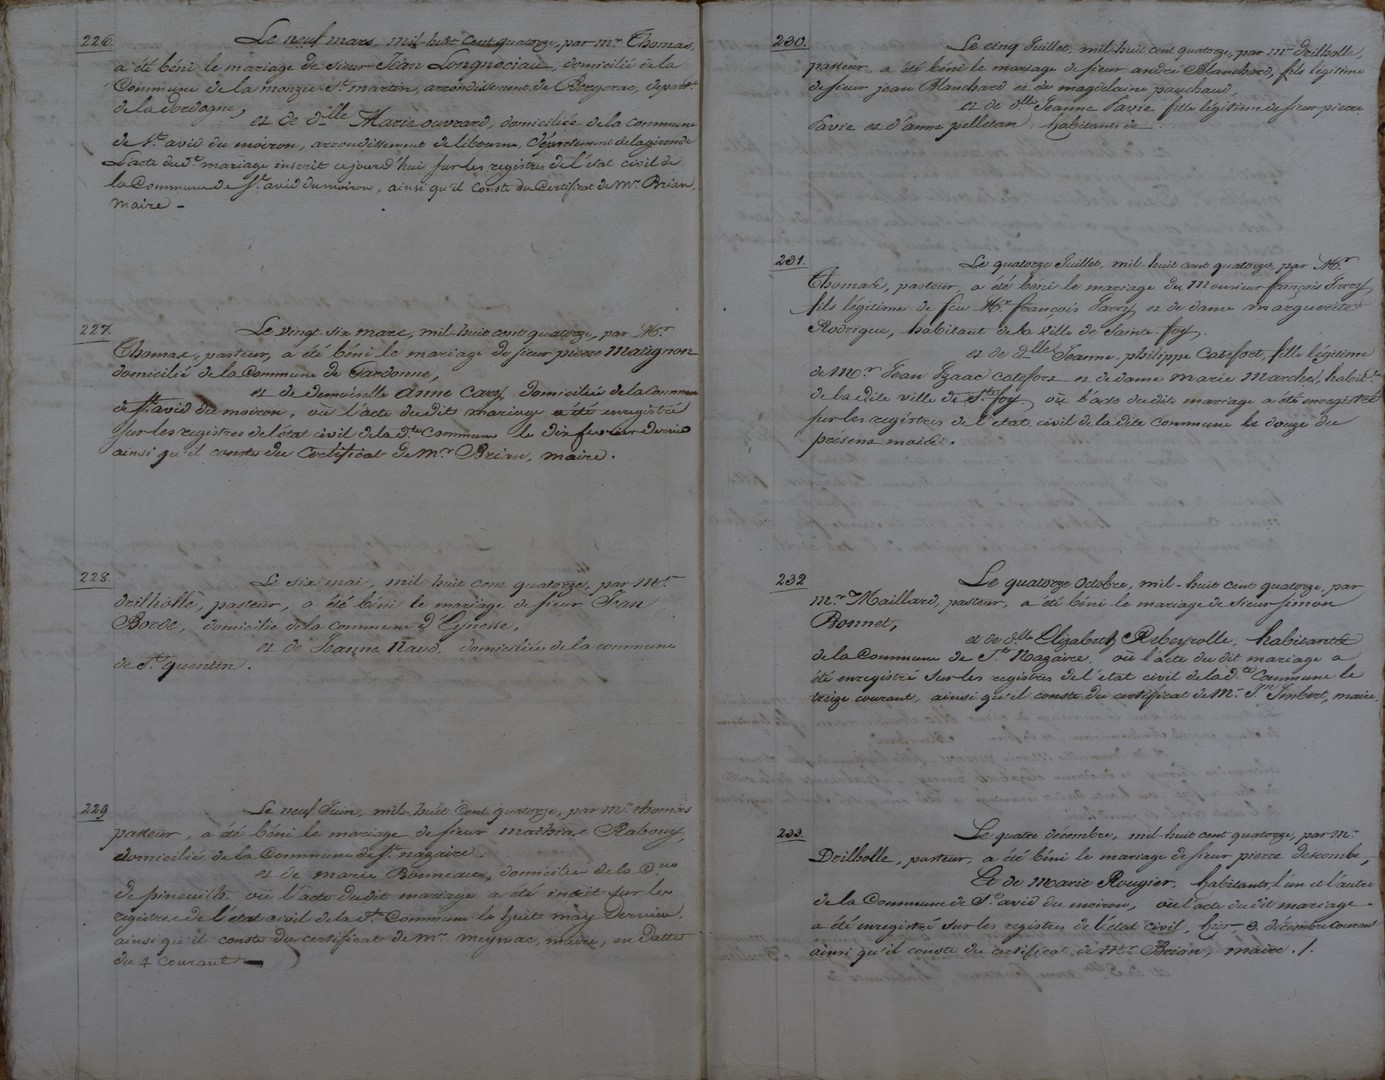 226. Le neuf mars, mil-huit cent quatorze, par mr. Thomas,
a été béni le mariage de sieur Jean Longnociau, domicilié de la
Commune de la monzie St. martin, arrondissement de Bergerac, départt.
de la dordogne,
et de dlle Marie ouvrard, domiciliée de la commune
de St. avid du moiron, arrondissement de libourne, département de la gironde
L'acte du dt. mariage inscrit cejourd'hui sur les registres de l'état civil de
la Commune de St. avid du moiron, ainsi qu'il conste du Certificat de Mr. Brian,
maire -
227. Le vingt six mars, mil-huit cent quatorze, par Mr.
Thomas, pasteur, a été béni le mariage de sieur pierre Matignon
domicilié de la Commune de Gardonne,
et de demoiselle anne Cary, domiciliée de la Commune
de St. avid du moiron, où l'acte du dit mariage a été enregistré
sur les registres de l'état civil de la dte. Commune le dix fevrier dernier
ainsi qu'il conste du Certificat de Mr. Brian, maire.
228. Le six mai, mil-huit cent quatorze, par Mr.
drilholle, pasteur, a été béni le mariage de sieur Jean
Borde, domicilié de la commune d'Eynesse,
et de Jeanne Naud, domiciliée de la commune
de St. quentin.
229 Le neuf Juin, mil-huit Cent quatorze, par mr. thomas
pasteur, a été béni le mariage de sieur mathias Rabouy,
domicilié de la Commune de St. nazaire,
et de marie Bonneau, domiciliée de la Cne
de pineuilh où l'acte du dit mariage a été inscrit sur les
registres de l'état civil de la dte. Commune le huit may dernier,
ainsi qu'il conste du certificat de mr. meynac, maire, en datte
du 4 courant.
230. Le cinq Juillet, mil-huit cent quatorze, par mr. drilholle,
pasteur, a été béni le mariage de sieur andré Blanchard, fils légitime
de sieur jean Blanchard et de magdelaine pauchaud,
et de dlle Jeanne Pavie fille légitime de sieur pierre
Pavie et d'anne pelletan habitants de
231. Le quatorze Juillet, mil-huit cent quatorze, par Mr.
Thomas, pasteur, a été béni le mariage du Monsieur françois Jarry
fils légitime de feu Mr. françois Jarry et de dame marguerite
Rodrigue, habitant de la ville de Sainte-foy,
et de dlle Jeanne-philippe Catefort, fille légitime
de Mr. Jean Izaac Catefort et de dame Marie Marché, habits.
de la dite ville de Ste foy où l'acte du dit mariage a été enregistré
sur les registres de l'état civil de la dite commune le douze du
présent mois.
232 Le quatorze Octobre, mil-huit cent quatorze, par
mr. Maillard, pasteur, a été béni le mariage de Sieur Simon
Bonnet,
et de dlle Elizabeth Rebeyrolle, habitants
de la Commune de St. Nazaire, où l'acte du dit mariage a
été enregistré sur les registres de l'état civil de la dte. Commune le
treize courant, ainsi qu'il conste du certificat de Mr. Jn. Imbert, maire.
233. Le quatre décembre, mil-huit cent quatorze, par mr.
Drilholle, pasteur, a été béni le mariage de sieur pierre descombe,
Et de Marie Rougier, habitants l'un et l'autre
de la Commune de St. avid du moiron, où l'acte du dit mariage
a été enregistré sur les registres de l'état civil, hier 3 décembre courant
ainsi qu'il conste du certificat de Mr. Brian, maire ./.